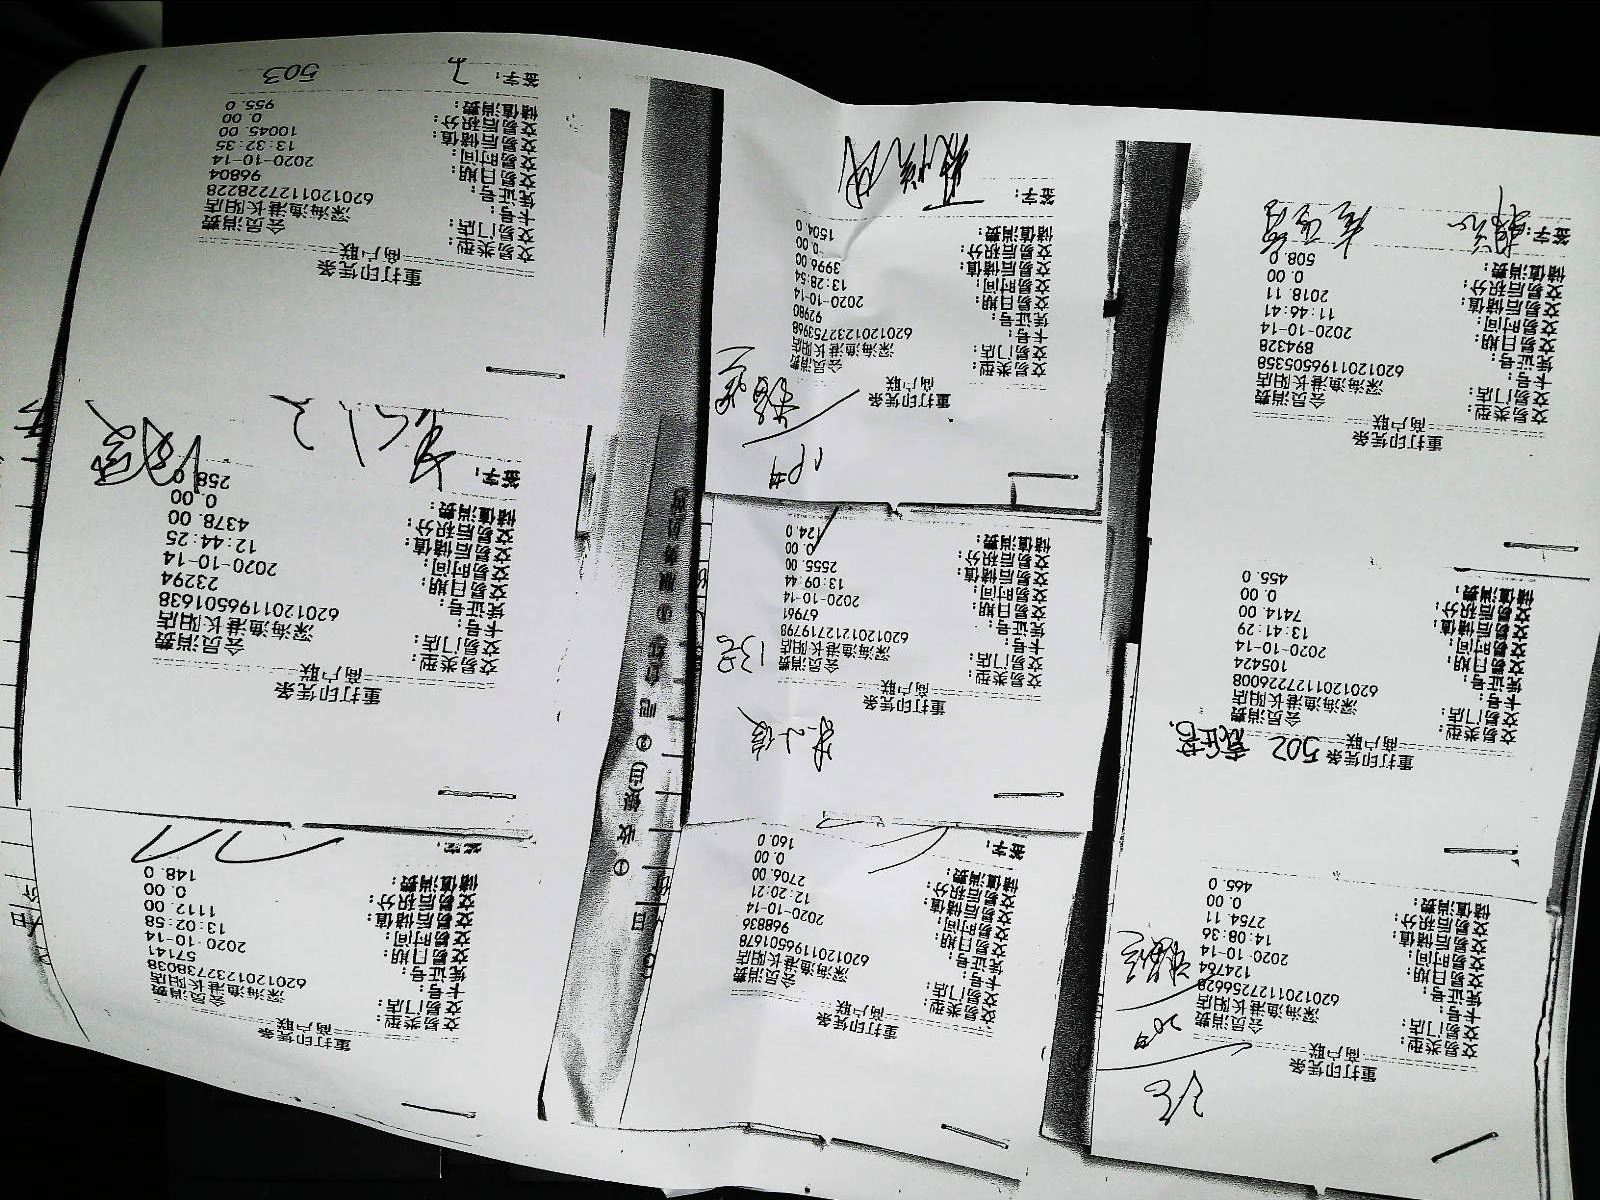 重打印凭条
商户联
交易类型: 会员消费
交易门店: 深海渔港长阳店
卡号: 6201201127256628
凭证号: 124764
交易日期: 2020-10-14
交易时间: 14:08:36
交易后储值: 2754.11
交易后积分: 0.00
储值消费: 465.0
重打印凭条
商户联
交易类型: 会员消费
交易门店: 深海渔港长阳店
卡号: 6201201196501678
凭证号: 968836
交易日期: 2020-10-14
交易时间: 12:20:21
交易后储值: 2706.00
交易后积分: 0.00
储值消费: 160.0
签字:
重打印凭条
商户联
交易类型: 会员消费
交易门店: 深海渔港长阳店
卡号: 6201201232738038
凭证号: 57141
交易日期: 2020-10-14
交易时间: 13:02:58
交易后储值: 1112.00
交易后积分: 0.00
储值消费: 148.0
签字:
重打印凭条 502
商户联
交易类型: 会员消费
交易门店: 深海渔港长阳店
卡号: 6201201127226008
凭证号: 105424
交易日期: 2020-10-14
交易时间: 13:41:29
交易后储值: 7414.00
交易后积分: 0.00
储值消费: 455.0
重打印凭条
商户联
交易类型: 会员消费
交易门店: 深海渔港长阳店
卡号: 6201201212719798
凭证号: 67961
13号
交易日期: 2020-10-14
交易时间: 13:09:44
交易后储值: 2555.00
交易后积分: 0.00
储值消费: 124.0
重打印凭条
商户联
交易类型: 会员消费
交易门店: 深海渔港长阳店
卡号: 6201201196501638
凭证号: 23294
交易日期: 2020-10-14
交易时间: 12:44:25
交易后储值: 4378.00
交易后积分: 0.00
储值消费: 258.0
签字:
重打印凭条
商户联
交易类型: 会员消费
交易门店: 深海渔港长阳店
卡号: 6201201196505358
凭证号: 894328
交易日期: 2020-10-14
交易时间: 11:46:41
交易后储值: 2018.11
交易后积分: 0.00
储值消费: 508.0
签字:
重打印凭条
商户联
交易类型: 会员消费
交易门店: 深海渔港长阳店
卡号: 6201201232753968
凭证号: 92980
交易日期: 2020-10-14
交易时间: 13:28:54
交易后储值: 3996.00
交易后积分: 0.00
储值消费: 1504.0
签字:
重打印凭条
商户联
交易类型: 会员消费
交易门店: 深海渔港长阳店
卡号: 6201201127228228
凭证号: 96804
交易日期: 2020-10-14
交易时间: 13:32:35
交易后储值: 10045.00
交易后积分: 0.00
储值消费: 955.0
签字: 503